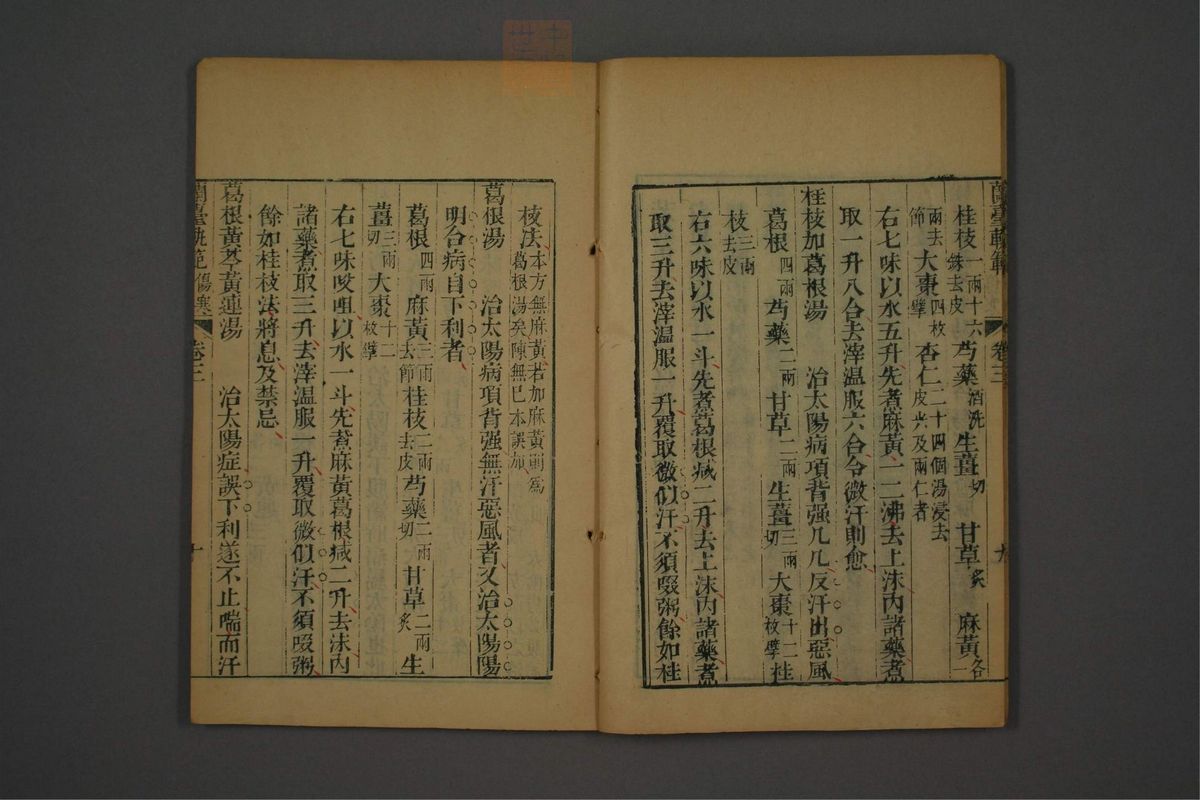 蘭臺軌範 卷三 九
桂枝一兩十六銖去皮 芍藥酒洗 生薑切 甘草炙 麻黃各一
兩去節 大棗四枚擘 杏仁二十四個湯浸去皮尖及兩仁者
右七味以水五升先煮麻黃一二沸去上沫內諸藥煮
取一升八合去滓温服六合令微汗則愈
桂枝加葛根湯 治太陽病項背强几几反汗出惡風
葛根四兩 芍藥二兩 甘草二兩 生薑三兩切 大棗十二枚擘 桂
枝三兩去皮
右六味以水一斗先煮葛根減二升去上沫內諸藥煮
取三升去滓温服一升覆取微似汗不須啜粥餘如桂
枝法本方無麻黃若加麻黃則爲葛根湯矣陳無已本誤加
葛根湯 治太陽病項背强無汗惡風者又治太陽陽
明合病自下利者
葛根四兩 麻黃三兩去節 桂枝二兩去皮 芍藥二兩切 甘草二兩炙 生
薑三兩切 大棗十二枚擘
右七味㕮咀以水一斗先煮麻黃葛根減二升去沫內
諸藥煮取三升去滓温服一升覆取微似汗不須啜粥
餘如桂枝法將息及禁忌
葛根黃芩黃連湯 治太陽症誤下利遂不止喘而汗
蘭臺軌範 傷寒 卷三 十